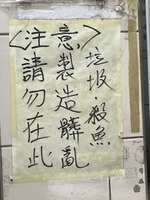 〈注意〉
請勿在此
製造髒亂
垃圾.殺魚